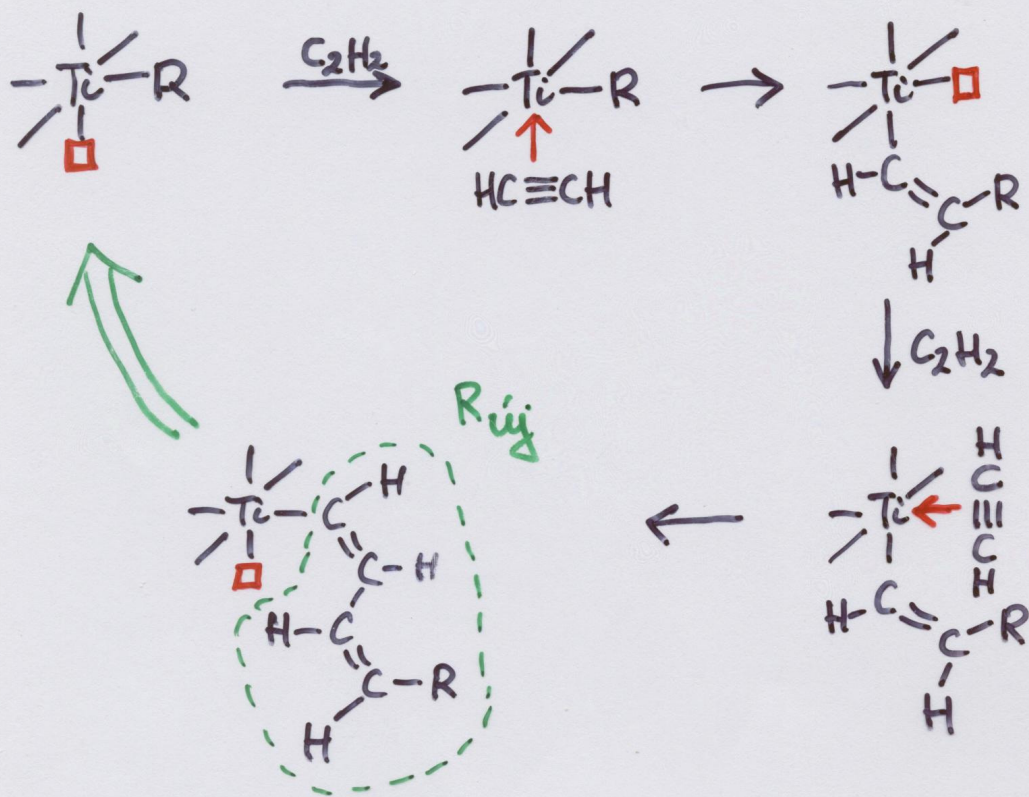 Ti—R
C₂H₂
Ti—R
HC≡CH
Ti
H-C
C-R
H
C₂H₂
R új
Ti-C-H
C-H
H-C
C-R
H
H
C
Ti
C
H
H-C
C-R
H